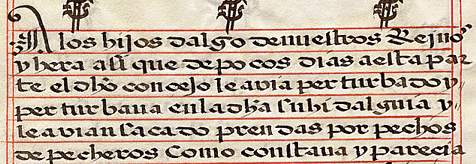 A los hijos dalgo de nuestros Reinos
y hera assi que de pocos dias a esta par
te el dho concejo le avia perturbado y
perturbava en la dha su hidalguia y
le avian sacado prendas por pechos
de pecheros Como constava y parecia